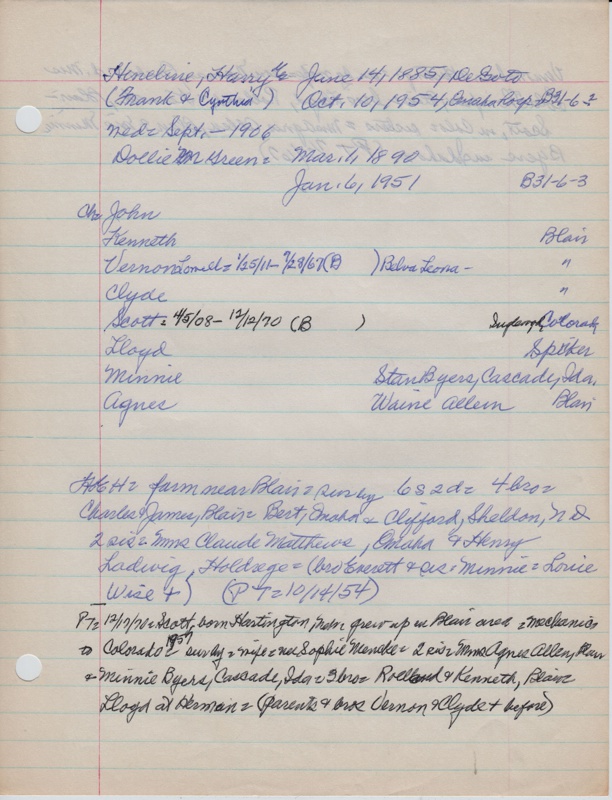 Hineline, Harry G June 14, 1885, DeSoto
(Frank & Cynthia ) Oct. 10, 1954, Omaha Hosp = B31-6-2
ned = Sept. - 1906
Dollie M Green = Mar. 1, 1890
Jan. 6, 1951 B31-6-3
Ch = John
Kenneth Blair
Vernon Lowell = 1/25/11 - 7/28/67 (B ) Belva Leona - "
Clyde "
Scott = 4/5/08 - 12/12/70 (B ) Colorado
Lloyd Spiker
Minnie Stan Byers, Cascade, Ida.
Agnes Waine Allen Blair
HGH = farm near Blair = survey 6s 2d = 4 bro =
Charles & James, Blair = Bert, Omaha & Clifford, Sheldon, ND
2 sis = Mms Claude Matthews, Omaha & Henry
Ladwig, Holdrege = (bro Everett & sis = Minnie = Louie
Wise +) (PT = 10/14/54)
PT = 12/17/70 = Scott, born Hartington, Nebr. grew up in Blair area = mechanics
to Colorado = 1937 survey = wife = nee Sophie Mencke = 2 sis = Mms Agnes Allen, Blair
& Minnie Byers, Cascade, Ida = 3 bro = Rolland & Kenneth, Blair
Lloyd at Herman = (parents & bros Vernon & Clyde + before)